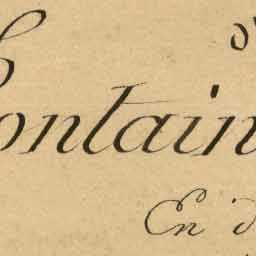 ontain
En d